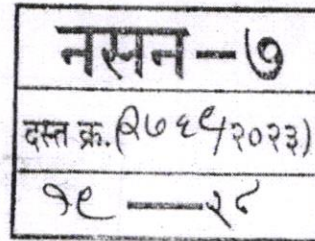 नसन-७
दस्त क्र.(२७६५/२०२३)
१९ — २८